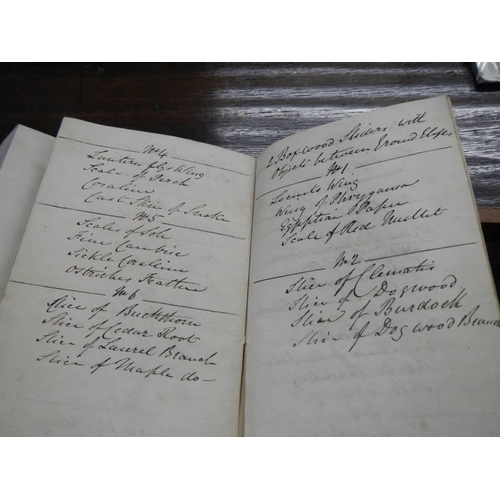 No 4
Lantern fly's Wing
Scale of Perch
Coraline
Cast Skin of Snake
No 5
Scales of Sole
Fine Cambric
Sickle Coraline
Ostriches Feather
No 6
Slice of Buckthorn
Slice of Cedar Root
Slice of Laurel Branch
Slice of Maple do-
2 Boxwood Sliders with
Objects between Ground Glasses
No 1
Locusts Wing
Wing of Phryganea
Egyptian Paper
Scale of Red Mullet
No 2
Slice of Clematis
Slice of Dogwood
Slice of Burdock
Slice of Dogwood Branch